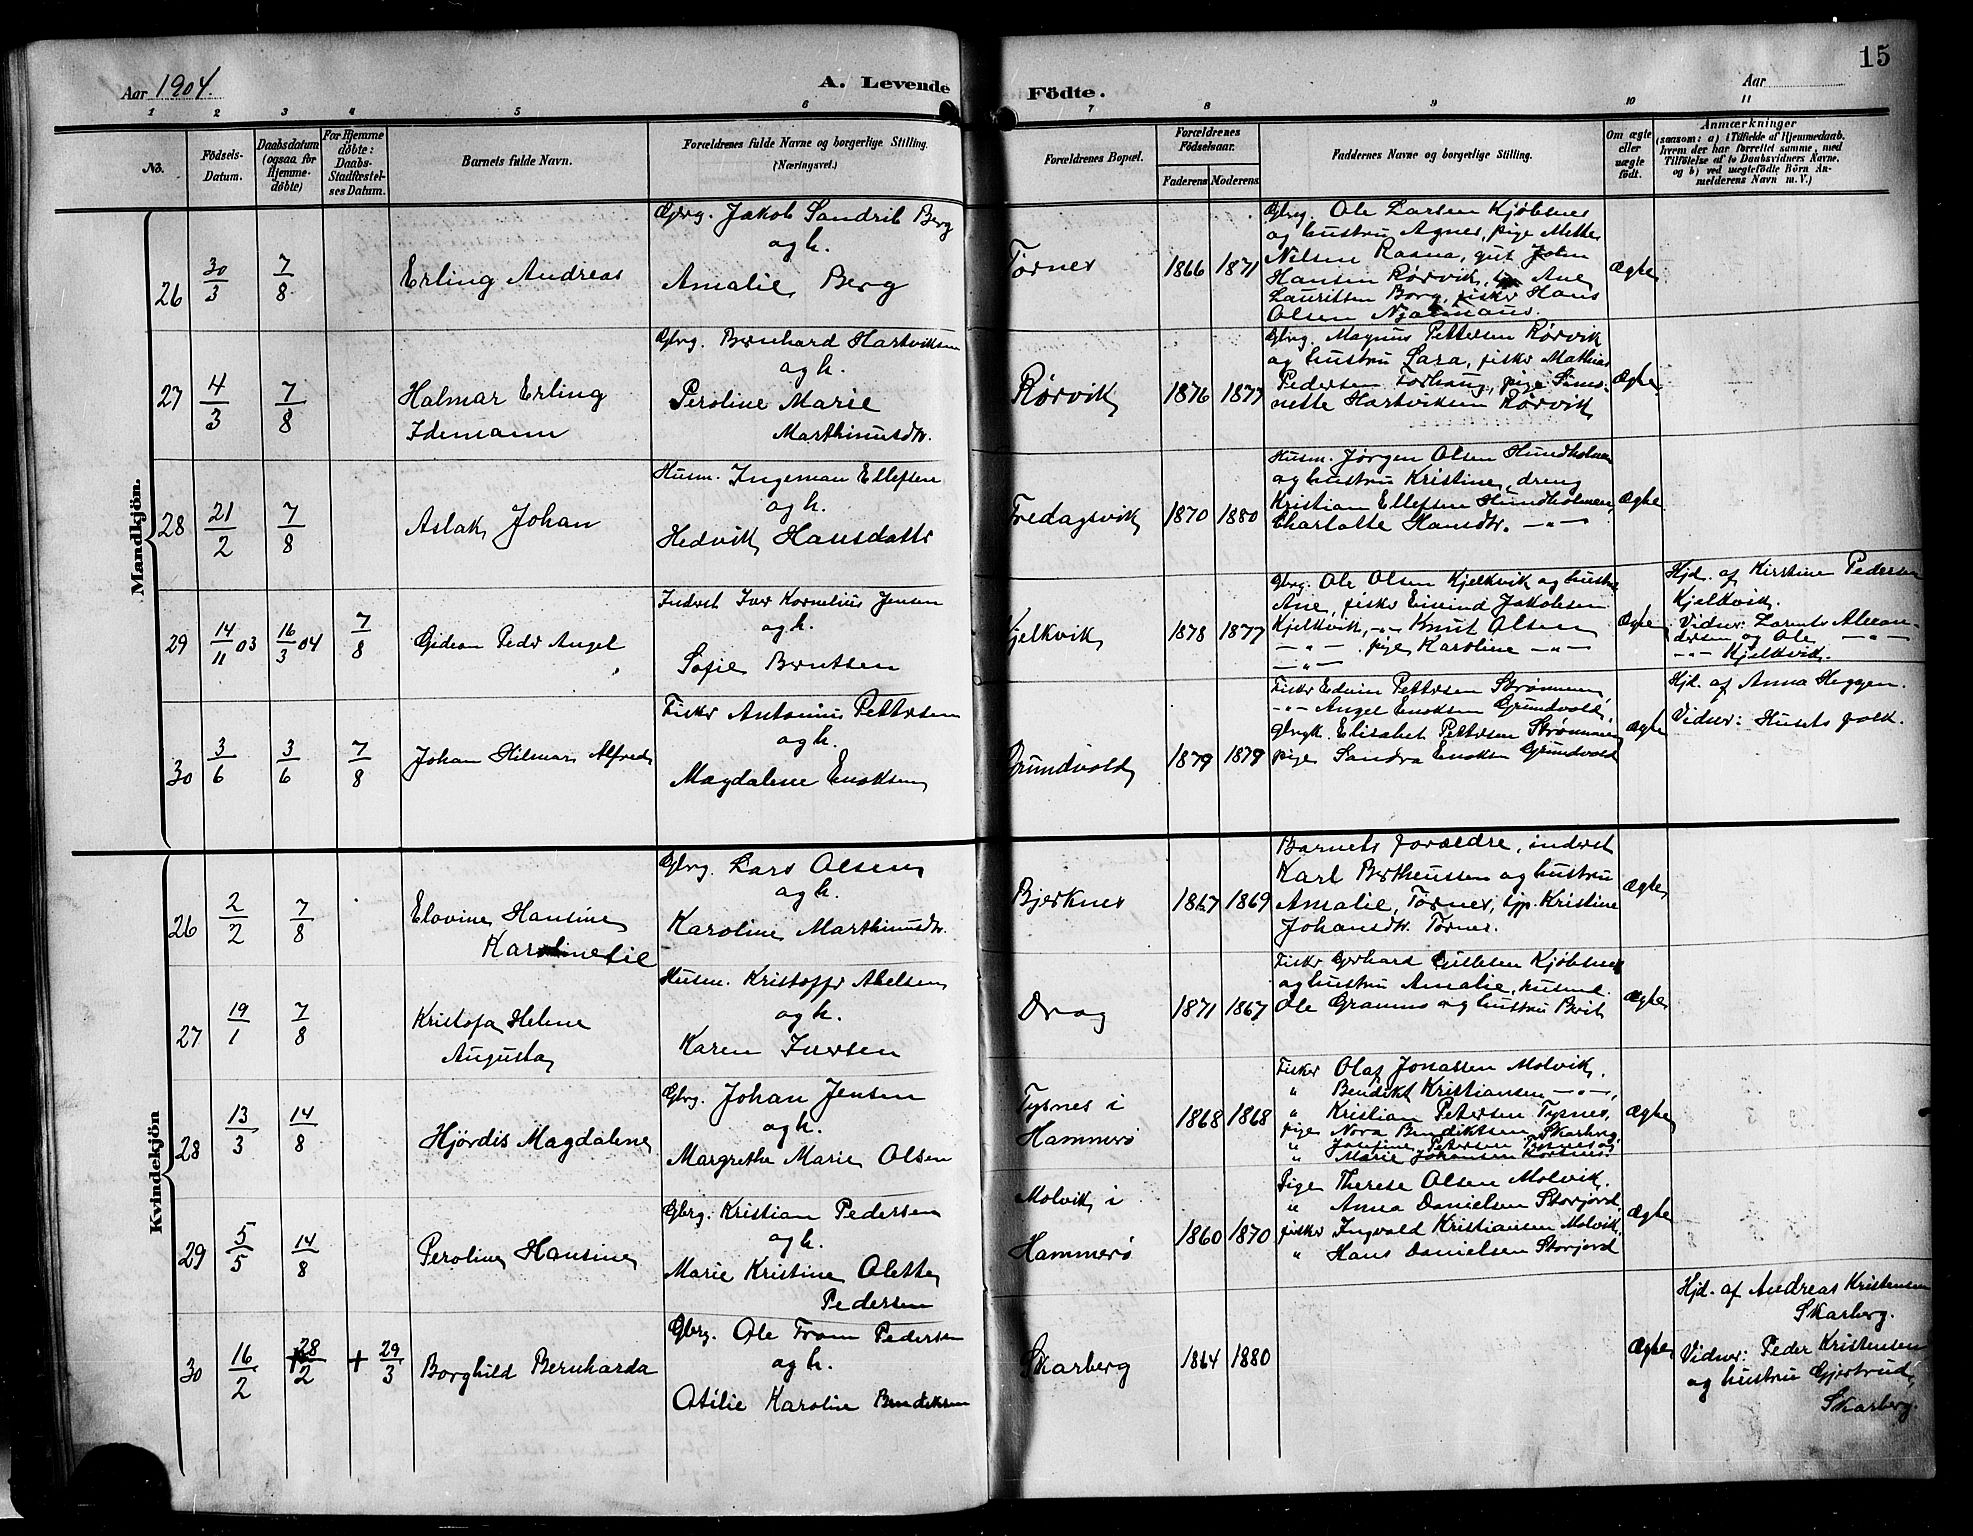 15
Aar 1904.
A. Levende Födte.
Aar
1 2 3 4 5 6 7 8 9 10 11
No.
Födsels-Datum.
Daabsdatum (ogsaa for Hjemme-döbte)
For Hjemme döbte: Daabs-Stadfæstel-ses Datum.
Barnets fulde Navn.
Forældrenes fulde Navne og borgerlige Stilling. (Næringsvei.)
Forældrenes Bopæl.
Forældrenes Födselsaar.
Faderens Moderens
Faddernes Navne og borgerlige Stilling.
Om ægte eller uægte födt.
Anmærkninger
(saasom: a) i Tilfælde af Hjemmedaab, hvem der har forrettet samme, med Tilföielse af to Daabsvidners Navne, og b) ved uægtefödte Börn An-melderens Navn m. V.)
Mandkjön.
26 30/3 7/8 Erling Andreas
Gbrg. Jakob Sandrib Berg
og h.
Amalie Berg
Tørnes 1866 1871
Gbrg. Ole Larsen Kjøbsnes
og hustru Agnes, pige Mette
Nilsen Rasna, gut John
Hansen Rørvik, Ane
Lauritsen Borg, fisker Hans
Olsen
Ægte
27 4/3 7/8 Halmar Erling
Idemann
Gbrg. Bernhard Hartviksen
og h.
Peroline Marie
Marthinusdtr.
Rørvik 1876 1877
Gbrg. Magnus Pettersen Rørvik
og hustru Sara, fisker Mathias
Pedersen Forhaug, pige Simo-
nette Hartviksen Rørvik
Ægte
28 21/2 7/8 Aslak Johan
Husm. Ingeman Ellefsen
og h.
Hedvik Hansdatter
Fredagsvik 1870 1880
Husm. Jørgen Olsen Hundholmen
og hustru Kristine, dreng
Kristian Ellefsen Hundholmen
Charlotte Hansdtr. -"-
Ægte
29 14/11 03 16/3 04 7/8 Gideon Peder Angel
Inderst Iver Kornelius Jensen
og h.
Sofie Berntsen
Kjelkvik 1878 1877
Gbrg. Ole Olsen Kjelkvik og hustru
Ane, fisker Eivind Jakobsen
Kjelkvik, -"- Knut Olsen
-"- pige Karoline -"-
-"-
Ægte
Hjd. af Kirstine Pedersen
Kjelkvik.
Vidner: Zarents Alexan-
dersen og Ole -"-
-"- Kjelkvik.
30 3/6 3/6 7/8 Johan Hilmar Alfred
Fisker Antonius Pettersen
og h.
Magdalene Enoksen
Grundvold 1879 1879
Fisker Edvin Pettersen Strømmen,
-"- Angel Enoksen Grundvold,
Gbrgk. Elisabet Pettersen Strømmen
pige Sandra Enoksen Grundvold
Ægte
Hjd. af Anna Heggen.
Vidner: Husets folk.
Kvindekjön
26 2/2 7/8 Elovine Hansine
Karolinesie
Gbrg. Lars Olsen
og h.
Karoline Marthinusdtr.
Bjerknes 1867 1869
Barnets forældre, inderst
Karl Bertheussen og hustru
Amalie, Tørnes, tjp. Kristine
Johansdtr. Tørnes.
Ægte
27 19/1 7/8 Kristofa Helene
Augusta
Husm. Kristoffer Abelsen
og h.
Karen Iversen
Drag 1871 1867
Fisker Gerhard Kjøbsnes
og hustru Amalie, husmd.
Ole Gramns og hustru Berit
Ægte
28 13/3 14/8 Hjördis Magdalene
Gbrg. Johan Jensen
og h.
Margrethe Marie Olsen
Tysnes i
Hammerø 1868 1868
Fisker Olaf Jonassen Molvik.
" Bendikt Kristiansen -"-,
" Kristian Petersen Tysnes,
pige Nora Bendiktsen Skarberg,
" Josefine Petersen Tysnes og
" Marie Johansen Korsnes.
Ægte
29 5/5 14/8 Peroline Hansine
Gbrg. Kristian Pedersen
og h.
Marie Kristine Olette
Pedersen
Molvik i
Hammerø 1860 1870
Pige Therese Olsen Molvik.
" Anna Danielsen Storjord,
fisker Ingvald Kristiansen Molvik,
" Hans Danielsen Storjord
Ægte
30 16/2 28/2 + 29/3 Borghild Bernharda
Gbrg. Ole From Pedersen
og h.
Otilie Karoline Bendiksen
Skarberg 1864 1880
Ægte
Hjd. af Andreas Kristensen
Skarberg.
Vidner: Peder Kristensen
og hustru Gjertrud,
Skarberg.